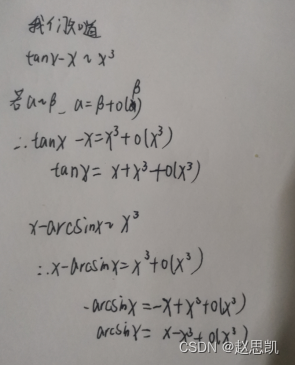 我们知道
tanx-x~x³
若α~β_ α=β+o(β)
∴tanx-x=x³+o(x³)
tanx=x+x³+o(x³)
x-arcsinx~x³
∴x-arcsinx=x³+o(x³)
-arcsinx=-x+x³+o(x³)
arcsinx=x-x³+o(x³)
CSDN @赵思凯